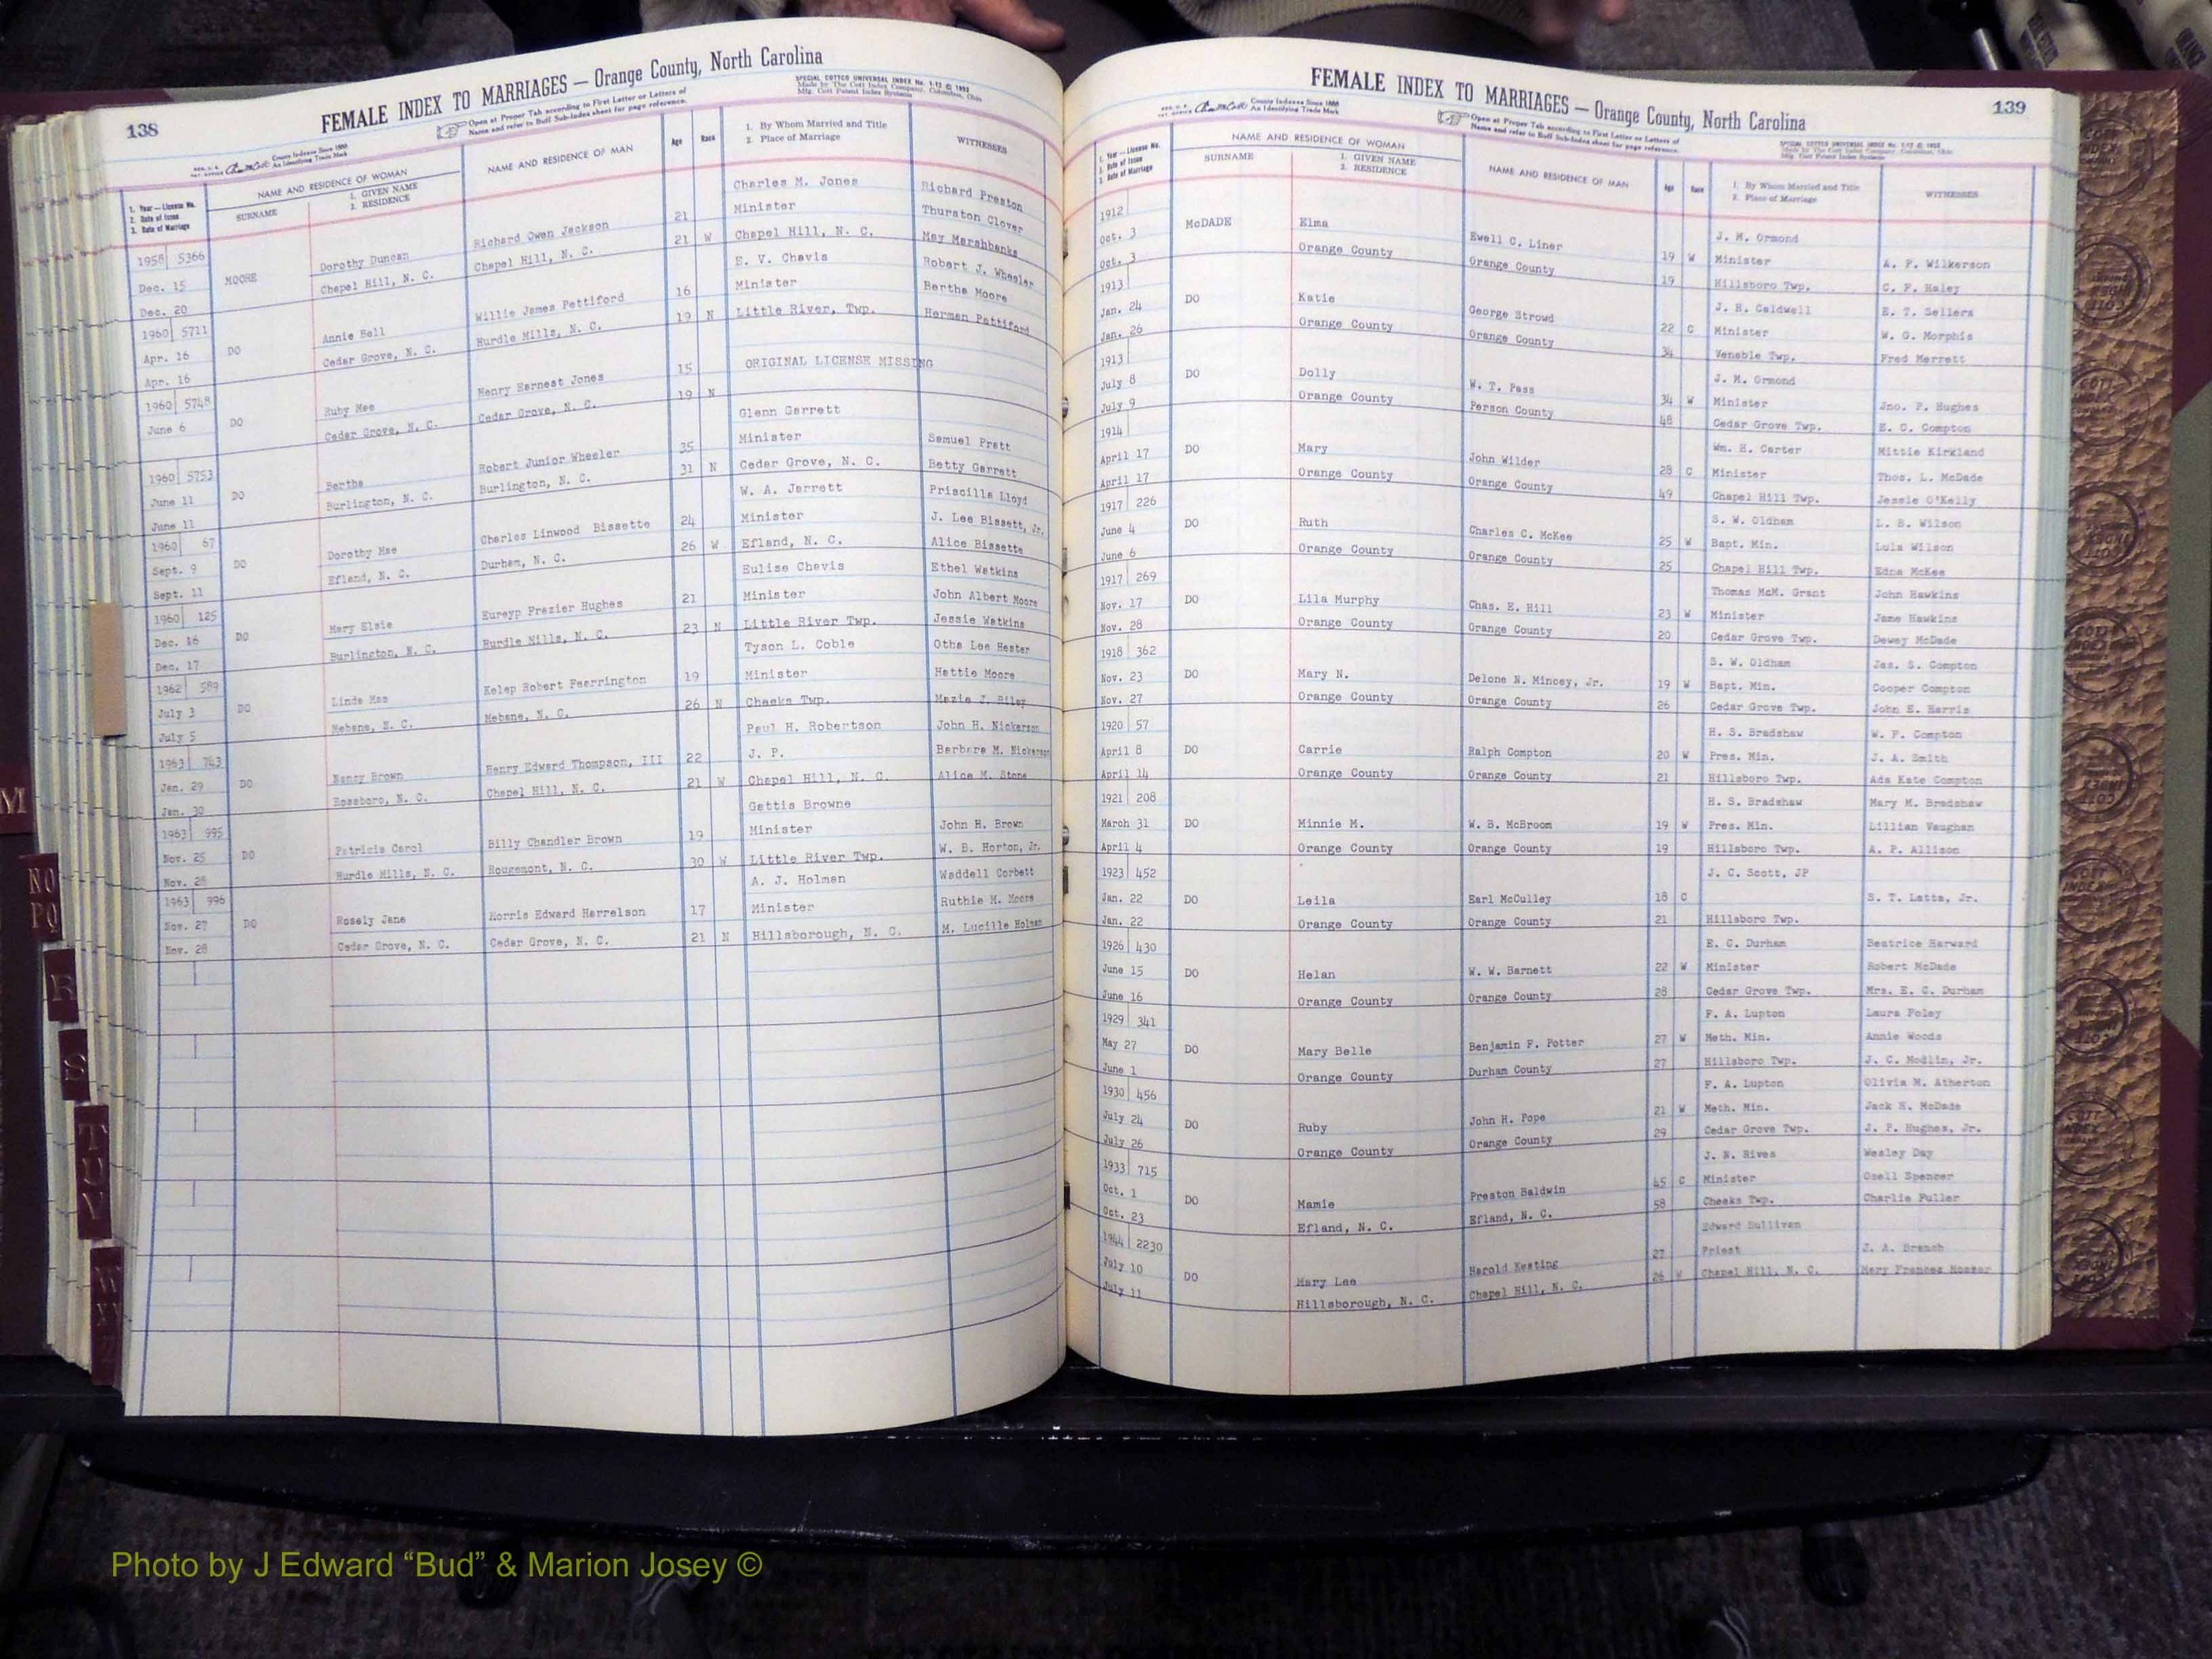 138
FEMALE INDEX TO MARRIAGES — Orange County, North Carolina
SPECIAL COTTCO UNIVERSAL INDEX No. 1-12 © 1952
Made by The Cott Index Company, Columbus, Ohio
Mfg. Cott Patent Index Systems
County Indexes Since 1888
An Identifying Trade Mark
Open at Proper Tab according to First Letter or Letters of
Name and refer to Buff Sub-Index sheet for page reference.
1. Year—License No.
2. Date of Issue
3. Date of Marriage
NAME AND RESIDENCE OF WOMAN
SURNAME
1. GIVEN NAME
2. RESIDENCE
NAME AND RESIDENCE OF MAN
Age
Race
1. By Whom Married and Title
2. Place of Marriage
WITNESSES
1958 5366 Charles M. Jones Richard Preston
Dec. 15 MOORE Dorothy Duncan Richard Owen Jackson 21 Minister Thurston Clover
Dec. 20 Chapel Hill, N. C. Chapel Hill, N. C. 21 W Chapel Hill, N. C. May Marshbanks
1960 5711 E. V. Chavis Robert J. Wheeler
Apr. 16 DO Annie Bell Willie James Pettiford 16 Minister Bertha Moore
Apr. 16 Cedar Grove, N. C. Hurdle Mills, N. C. 19 N Little River, Twp. Herman Pettiford
1960 5748
June 6 DO Ruby Mae Henry Earnest Jones 15 ORIGINAL LICENSE MISSING
Cedar Grove, N. C. Cedar Grove, N. C. 19 N
1960 5753 Glenn Garrett
June 11 DO Bertha Robert Junior Wheeler 35 Minister Samuel Pratt
June 11 Burlington, N. C. Burlington, N. C. 31 N Cedar Grove, N. C. Betty Garrett
1960 67 W. A. Jarrett Priscilla Lloyd
Sept. 9 DO Dorothy Mae Charles Linwood Bissette 24 Minister J. Lee Bissett, Jr.
Sept. 11 Efland, N. C. Durham, N. C. 26 W Efland, N. C. Alice Bissette
1960 125 Eulise Chavis Ethel Watkins
Dec. 16 DO Mary Elsie Eureyp Frazier Hughes 21 Minister John Albert Moore
Dec. 17 Burlington, N. C. Hurdle Mills, N. C. 23 N Little River Twp. Jessie Watkins
1962 589 Tyson L. Coble Otha Lee Hester
July 3 DO Linda Mae Kelep Robert Faerrington 19 Minister Hattie Moore
July 5 Mebane, N. C. Mebane, N. C. 26 N Cheeks Twp. Mazie J. Riley
1963 743 Paul H. Robertson John H. Nickerson
Jan. 29 DO Nancy Brown Henry Edward Thompson, III 22 J. P. Barbara M. Nickerson
Jan. 30 Roseboro, N. C. Chapel Hill, N. C. 21 W Chapel Hill, N. C. Alice M. Stone
1963 995 Gattis Browne
Nov. 25 DO Patricia Carol Billy Chandler Brown 19 Minister John H. Brown
Nov. 28 Hurdle Mills, N. C. Rougemont, N. C. 30 W Little River Twp. W. B. Horton, Jr.
1963 996 A. J. Holman Waddell Corbett
Nov. 27 DO Rosely Jane Morris Edward Harrelson 17 Minister Ruthie M. Moore
Nov. 28 Cedar Grove, N. C. Cedar Grove, N. C. 21 N Hillsborough, N. C. M. Lucille Holman
M
NO
PQ
R
S
T
U
V
W
139
FEMALE INDEX TO MARRIAGES — Orange County, North Carolina
County Indexes Since 1888
An Identifying Trade Mark
Open at Proper Tab according to First Letter or Letters of
Name and refer to Buff Sub-Index sheet for page reference.
SPECIAL COTTCO UNIVERSAL INDEX No. 1-12 © 1952
Made by The Cott Index Company, Columbus, Ohio
Mfg. Cott Patent Index Systems
1. Year—License No.
2. Date of Issue
3. Date of Marriage
NAME AND RESIDENCE OF WOMAN
SURNAME
1. GIVEN NAME
2. RESIDENCE
NAME AND RESIDENCE OF MAN
Age
Race
1. By Whom Married and Title
2. Place of Marriage
WITNESSES
1912 J. M. Ormond
Oct. 3 McDADE Elma Ewell C. Liner 19 W Minister A. P. Wilkerson
Oct. 3 Orange County Orange County 19 Hillsboro Twp. C. F. Haley
1913 J. H. Caldwell E. T. Sellers
Jan. 24 DO Katie George Strowd 22 C Minister W. G. Morphis
Jan. 26 Orange County Orange County 34 Venable Twp. Fred Merrett
1913 J. M. Ormond
July 8 DO Dolly W. T. Pass 34 W Minister Jno. P. Hughes
July 9 Orange County Person County 48 Cedar Grove Twp. E. C. Compton
1914 Wm. H. Carter Mittie Kirkland
April 17 DO Mary John Wilder 28 C Minister Thos. L. McDade
April 17 Orange County Orange County 49 Chapel Hill Twp. Jessie O'Kelly
1917 226 S. W. Oldham L. B. Wilson
June 4 DO Ruth Charles C. McKee 25 W Bapt. Min. Lula Wilson
June 6 Orange County Orange County 25 Chapel Hill Twp. Edna McKee
1917 269 Thomas McM. Grant John Hawkins
Nov. 17 DO Lila Murphy Chas. E. Hill 23 W Minister Jane Hawkins
Nov. 28 Orange County Orange County 20 Cedar Grove Twp. Dewey McDade
1918 362 S. W. Oldham Jas. S. Compton
Nov. 23 DO Mary N. Delone N. Mincey, Jr. 19 W Bapt. Min. Cooper Compton
Nov. 27 Orange County Orange County 26 Cedar Grove Twp. John E. Harris
1920 57 H. S. Bradshaw W. F. Compton
April 8 DO Carrie Ralph Compton 20 W Pres. Min. J. A. Smith
April 14 Orange County Orange County 21 Hillsboro Twp. Ada Kate Compton
1921 208 H. S. Bradshaw Mary M. Bradshaw
March 31 DO Minnie M. W. B. McBroom 19 W Pres. Min. Lillian Vaughan
April 4 Orange County Orange County 19 Hillsboro Twp. A. P. Allison
1923 452 J. C. Scott, JP
Jan. 22 DO Leila Earl McCulley 18 C S. T. Latta, Jr.
Jan. 22 Orange County Orange County 21 Hillsboro Twp.
1926 430 E. C. Durham Beatrice Harward
June 15 DO Helan W. W. Barnett 22 W Minister Robert McDade
June 16 Orange County Orange County 28 Cedar Grove Twp. Mrs. E. C. Durham
1929 341 F. A. Lupton Laura Foley
May 27 DO Mary Belle Benjamin F. Potter 27 W Meth. Min. Annie Woods
June 1 Orange County Durham County 27 Hillsboro Twp. J. C. Modlin, Jr.
1930 456 F. A. Lupton Olivia M. Atherton
July 24 DO Ruby John H. Pope 21 W Meth. Min. Jack H. McDade
July 26 Orange County Orange County 29 Cedar Grove Twp. J. P. Hughes, Jr.
1933 715 J. N. Rives Wesley Day
Oct. 1 DO Mamie Preston Baldwin 45 C Minister Ozell Spencer
Oct. 23 Efland, N. C. Efland, N. C. 58 Cheeks Twp. Charlie Fuller
1944 2230 Edward Sullivan
July 10 DO Mary Lee Harold Keating 27 Priest J. A. Branch
July 11 Hillsborough, N. C. Chapel Hill, N. C. 26 W Chapel Hill, N. C. Mary Frances
Photo by J Edward “Bud” & Marion Josey ©